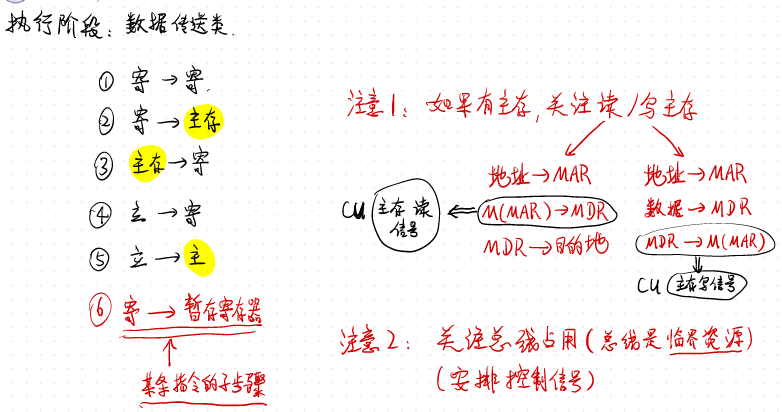 执行阶段：数据传送类.
① 寄→寄.
② 寄→主存
③ 主存→寄
④ 立→寄
⑤ 立→主
⑥ 寄→暂存寄存器
某条指令的子步骤
注意1：如果有主存,关注读/写主存
地址→MAR
M(MAR)→MDR
MDR→目的地
CU 主存读信号
地址→MAR
数据→MDR
MDR→M(MAR)
CU 主存写信号
注意2：关注总线占用(总线是临界资源)
(安排控制信号)